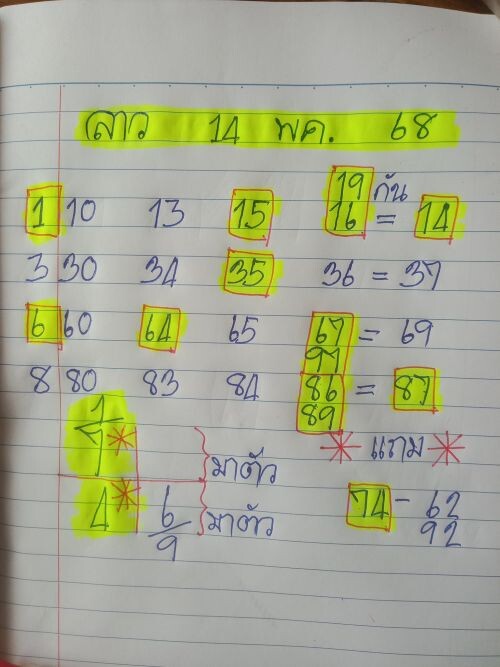 ลาว 14 พค. 68
19 กัน
1 10 13 15 16 = 14
3 30 34 35 36 = 37
6 60 64 65 67 = 69
97
8 80 83 84 86 = 87
89
1
7* มาตัว
* แถม *
4* 6/9 มาตัว
74 - 62
92